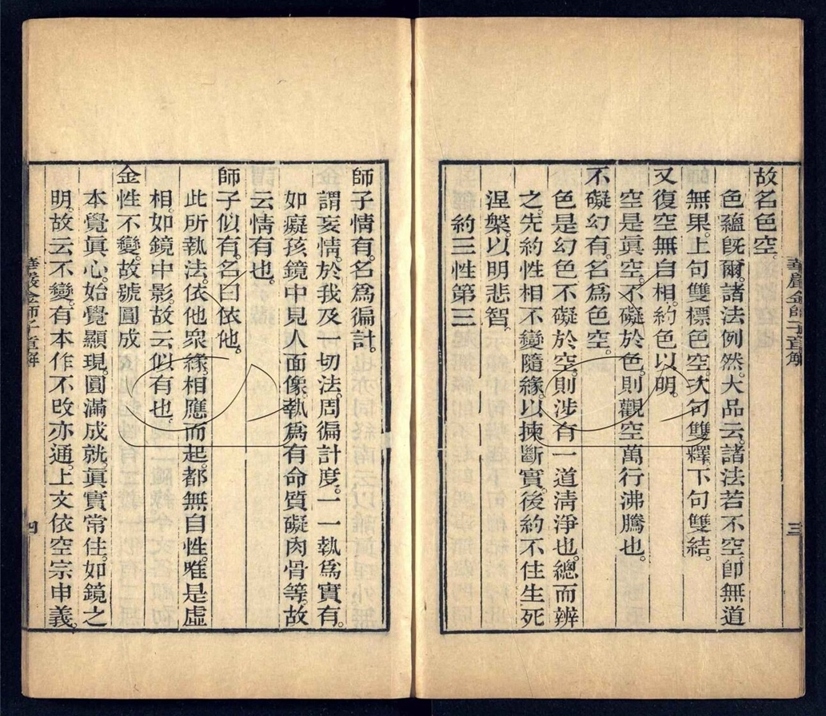 故名色空。
色蘊旣爾諸法例然。大品云。諸法若不空卽無道
無果。上句雙標色空。次句雙釋。下句雙結。
又復空無自相。約色以明。
空是眞空。不礙於色。則觀空萬行沸騰也。
不礙幻有。名爲色空。
色是幻色不礙於空。則涉有一道淸淨也。總而辨
之。先約性相不變隨緣。以揀斷實。後約不住生死
涅槃。以明悲智。
約三性第三
三
師子情有。名爲徧計。
謂妄情。於我及一切法。周徧計度。一一執爲實有。
如癡孩鏡中見人面像。執爲有命質礙肉骨等故
云情有也。
師子似有。名曰依他。
此所執法。依他眾緣。相應而起。都無自性。唯是虛
相。如鏡中影。故云似有也。
金性不變。故號圓成
本覺眞心。始覺顯現。圓滿成就。眞實常住。如鏡之
明。故云不變。有本作不改亦通。上文依空宗申義。
四